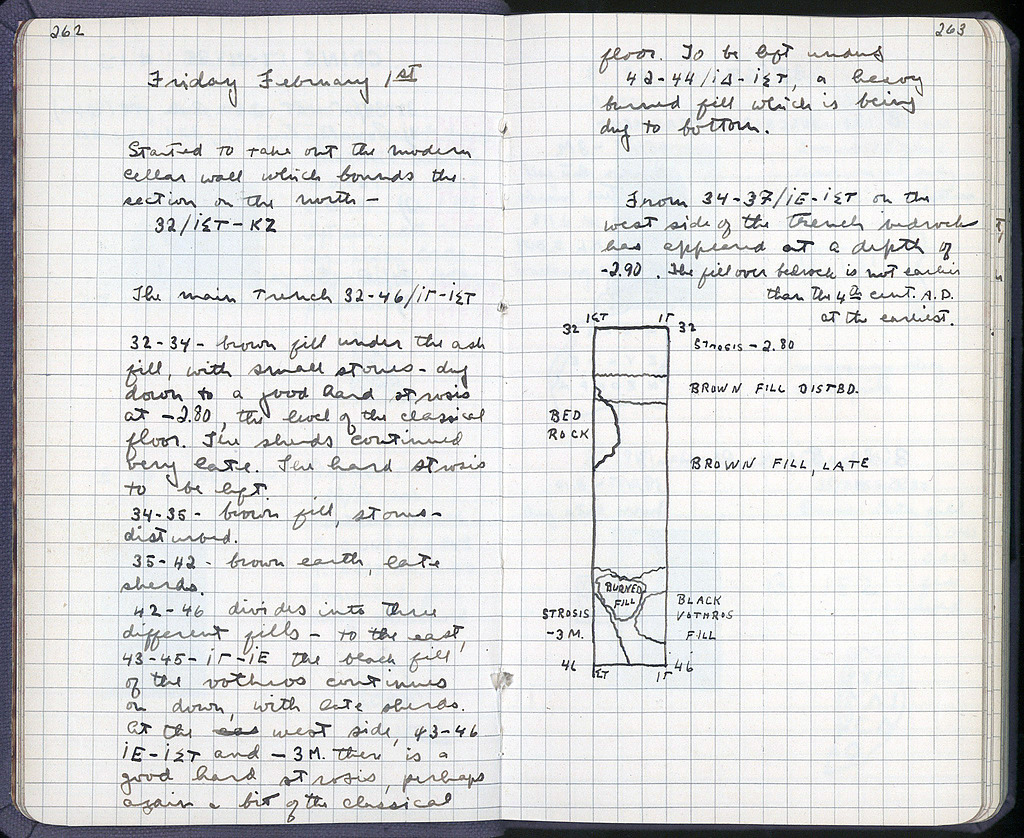 262
Friday February 1st
Started to take out the modern
cellar wall which bounds the
section on the north –
32/ΙΣΤ – ΚΖ
The main Trench 32-46/ΙΓ-ΙΣΤ
32-34 - brown fill under the ash
fill, with small stones - dug
down to a good hard strosis
at -2.80, the level of the classical
floor. The sherds continued
very late. The hard strosis
to be left.
34-35 - brown fill, stones -
disturbed.
35-42 - brown earth, late
sherds.
42-46 divides into three
different fills - to the east,
43-45-ΙΓ-ΙΕ the black fill
of the vothros continues
on down, with late sherds.
At the west side, 43-46
ΙΕ-ΙΣΤ and -3M. there is a
good hard strosis, perhaps
again a bit of the classical
263
floor. To be left under
42-44/ΙΔ-ΙΣΤ, a heavy
burned fill which is being
dug to bottom.
From 34-37/ΙΕ-ΙΣΤ on the
west side of the trench bedrock
has appeared at a depth of
-2.90. The fill over bedrock is not earlier
than the 4th cent. A.D.
at the earliest.
ΙΣΤ ΙΓ
32 32
STROSIS -2.80
BROWN FILL DISTBD.
BED
ROCK
BROWN FILL, LATE
BURNED
FILL
STROSIS
-3 M.
BLACK
VOTHROS
FILL
46 46
ΣΤ ΙΓ